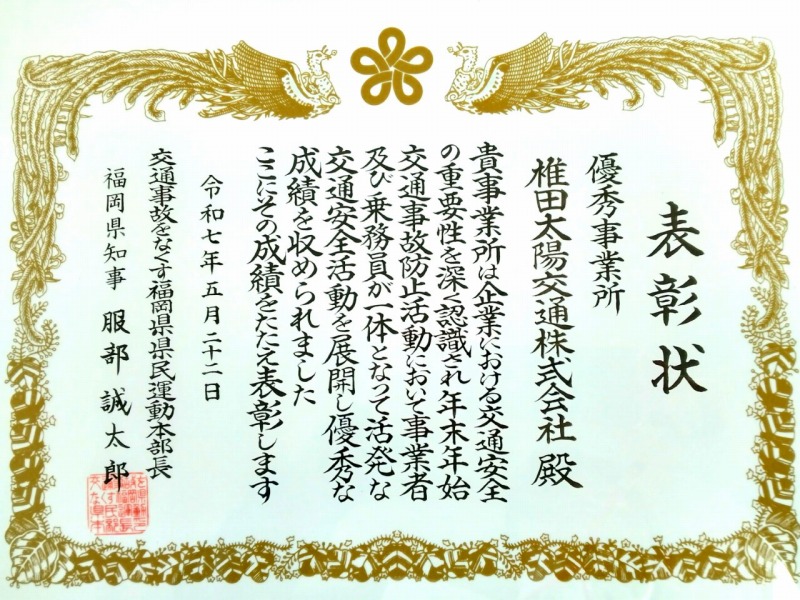 表彰状
優秀事業所
椎田太陽交通株式会社 殿
貴事業所は企業における交通安全
の重要性を深く認識され年末年始
交通事故防止活動において事業者
及び乗務員が一体となって活発な
交通安全活動を展開し優秀な
成績を収められました
ここにその成績をたたえ表彰します
令和七年五月二十二日
交通事故をなくす福岡県県民運動本部長
福岡県知事 服部誠太郎